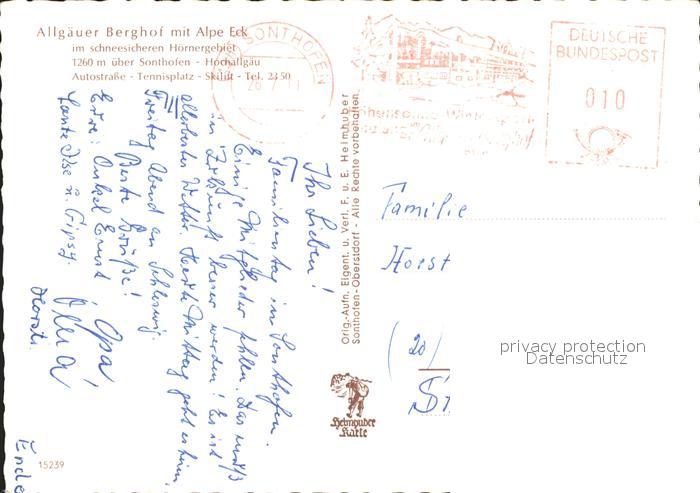 Allgäuer Berghof mit Alpe Eck
im schneesicheren Hörnergebiet
1260 m über Sonthofen - Hochallgäu
Autostraße - Tennisplatz - Skilift - Tel. 2350
SONTHOFEN
DEUTSCHE
BUNDESPOST
010
Ihr Lieben!
Familientag in Sonthofen.
Einige Mitglieder fehlen. Das muß
in Zukunft besser werden! Es ist
allerbestes Wetter. Heute Mittag geht es heim,
Freitag Abend an Schleswig.
Beste Grüße!
Eure: Onkel Ernst
Tante Ilse u. Gipsy.
Opa
Oma
Horst.
Ende
Orig.-Aufn. Eigent. u. Verl. F. u. E. Heimhuber
Sonthofen-Oberstdorf - Alle Rechte vorbehalten
Familie
Horst
(20)
St
privacy protection
Datenschutz
Heimhuber
Karte
15239